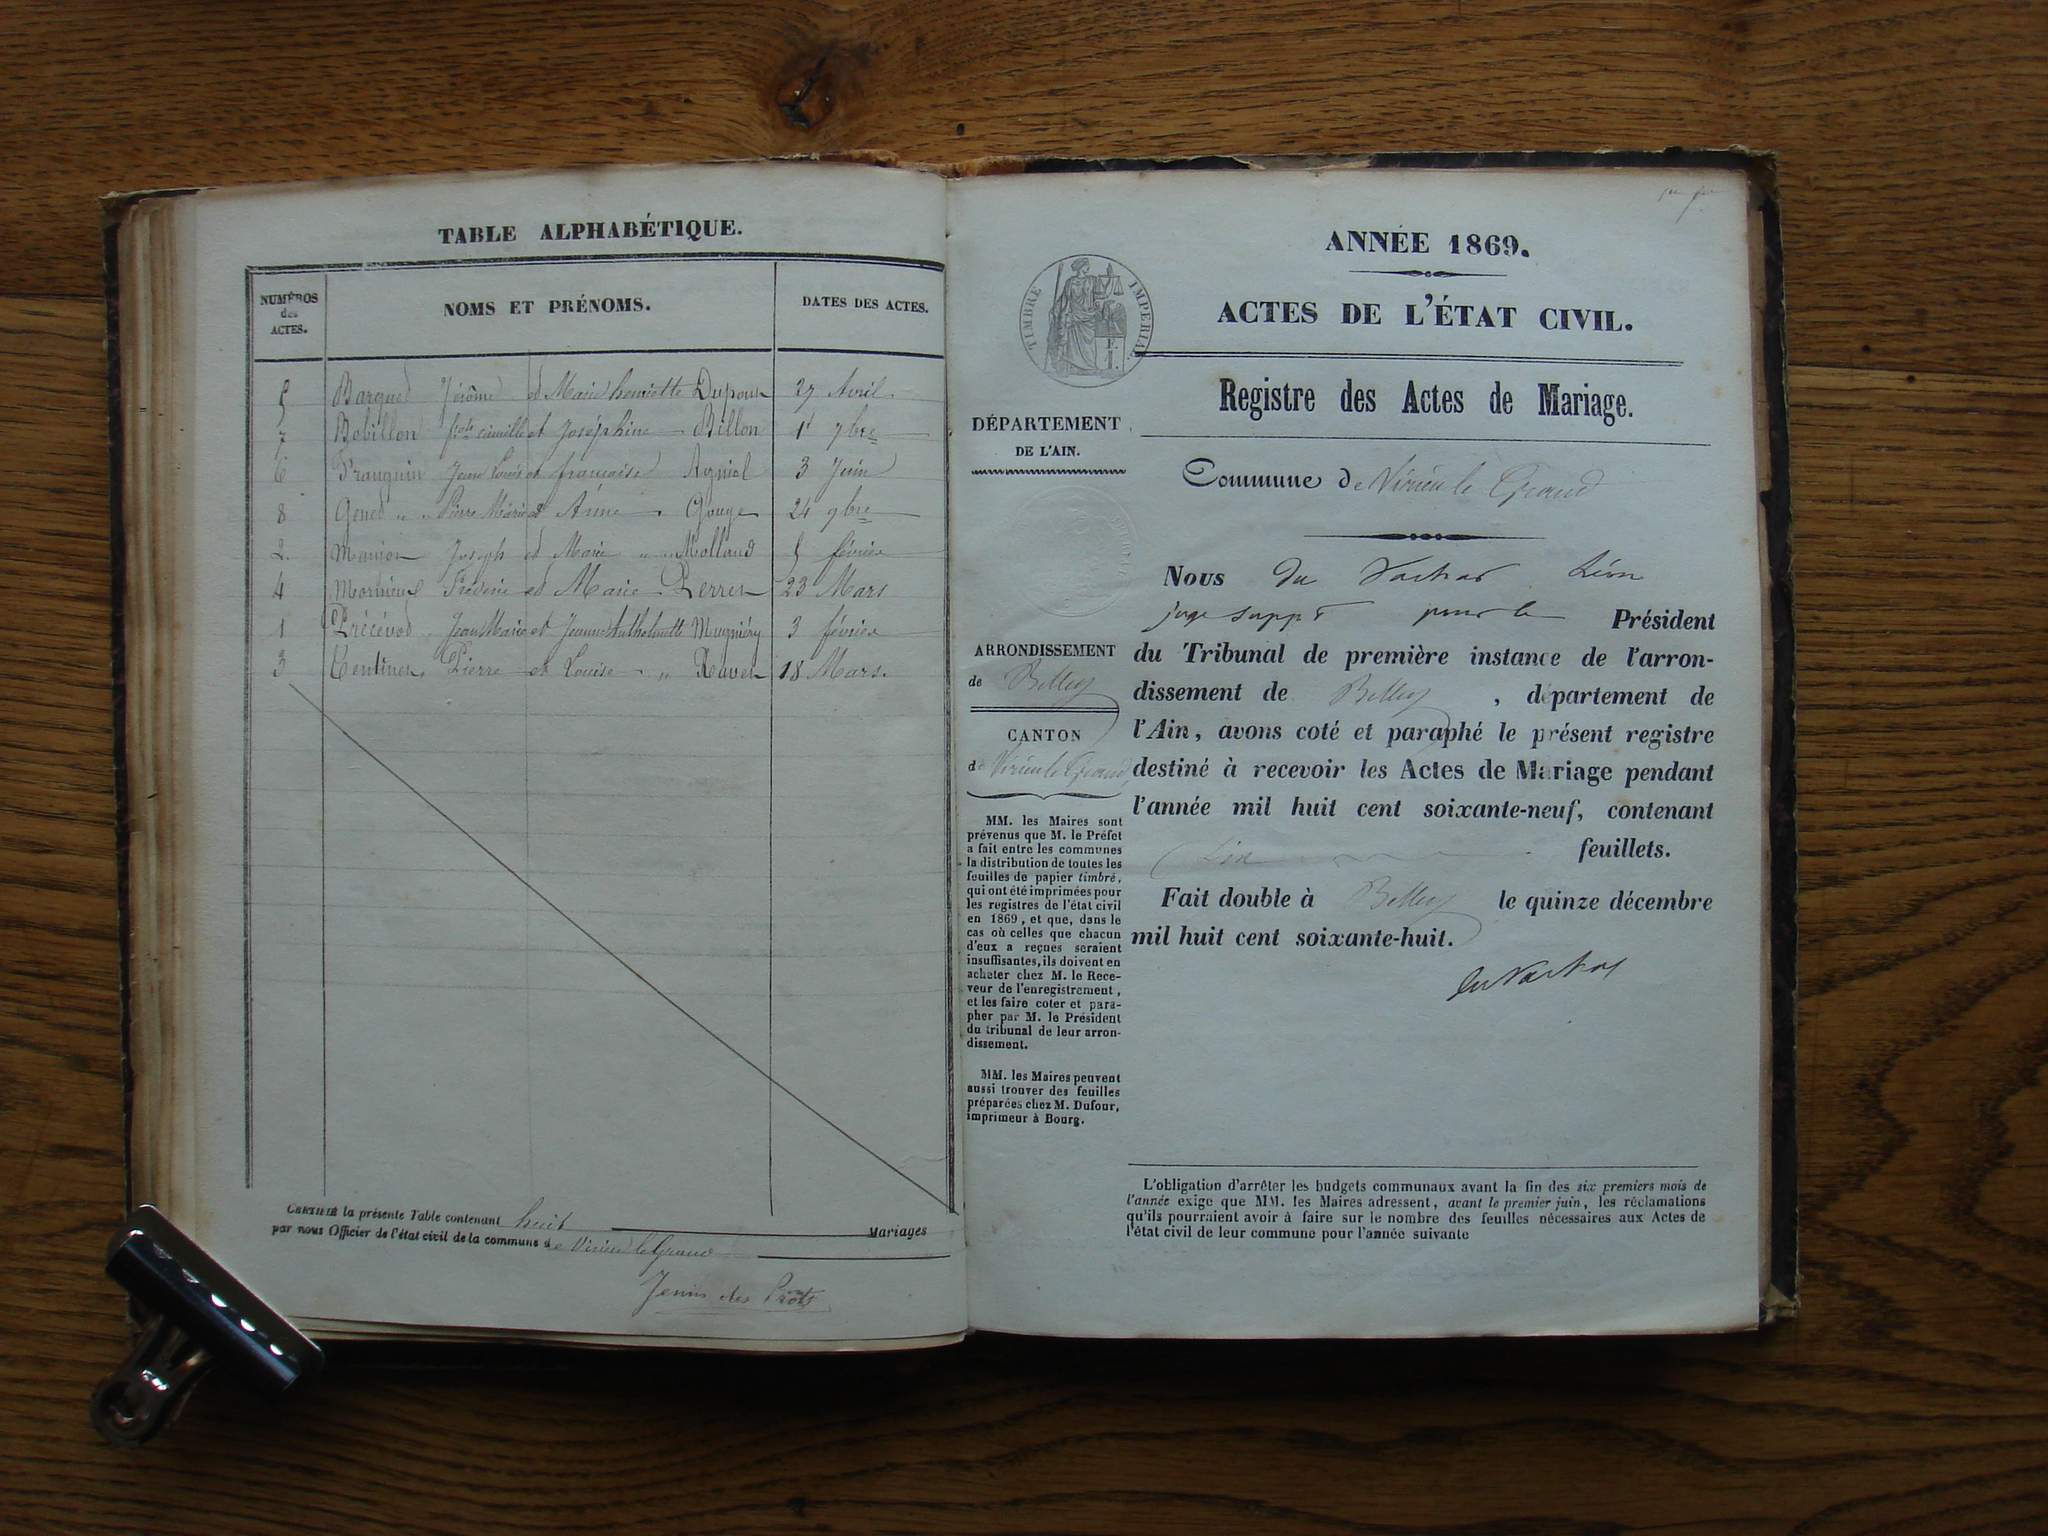 TABLE ALPHABÉTIQUE.
NUMÉROS des ACTES.
NOMS ET PRÉNOMS.
DATES DES ACTES.
5 Jérôme et Marie henriette Dupont 27 Avril
7 Bobillon camille et Joséphine Billon 1r 9bre
6 Franquin Jean Louis et françoise 3 Juin
8 Pierre Marie et Anne Gouge 24 9bre
2 Joseph et Marie " Molland 5 février
4 et Marie Perret 23 Mars
1 Jean Marie et Jeanne Mugniéry 3 février
3 Pierre et Louise " Ravet 18 Mars.
CERTIFIÉ la présente Table contenant huit Mariages
par nous Officier de l'état civil de la commune de Virieu le Grand
ANNÉE 1869.
ACTES DE L'ÉTAT CIVIL.
TIMBRE IMPERIAL
Registre des Actes de Mariage.
DÉPARTEMENT
DE L'AIN.
Commune de Virieu le Grand
Nous Du Léon
juge suppt pour le Président
du Tribunal de première instance de l'arron-
dissement de Belley, département de
l'Ain, avons coté et paraphé le présent registre
destiné à recevoir les Actes de Mariage pendant
l'année mil huit cent soixante-neuf, contenant
feuillets.
Fait double à Belley le quinze décembre
mil huit cent soixante-huit.
ARRONDISSEMENT
de Belley
CANTON
de Virieu le Grand
MM. les Maires sont
prévenus que M. le Préfet
a fait entre les communes
la distribution de toutes les
feuilles de papier timbré,
qui ont été imprimées pour
les registres de l'état civil
en 1869, et que, dans le
cas où celles que chacun
d'eux a reçues seraient
insuffisantes, ils doivent en
acheter chez M. le Rece-
veur de l'enregistrement,
et les faire coter et para-
pher par M. le Président
du tribunal de leur arron-
dissement.
MM. les Maires peuvent
aussi trouver des feuilles
préparées chez M. Dufour,
imprimeur à Bourg.
L'obligation d'arrêter les budgets communaux avant la fin des six premiers mois de
l'année exige que MM. les Maires adressent, avant le premier juin, les réclamations
qu'ils pourraient avoir à faire sur le nombre des feuilles nécessaires aux Actes de
l'état civil de leur commune pour l'année suivante